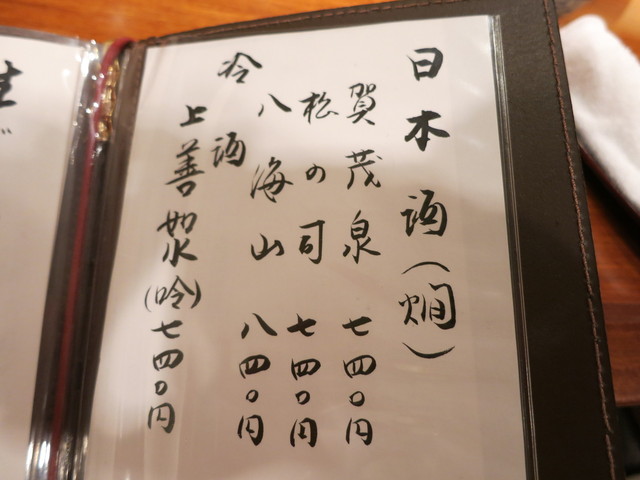 日本酒(燗)
賀茂泉 七四〇円
松の司 七四〇円
八海山 八四〇円
冷酒
上善如水(吟)七四〇円